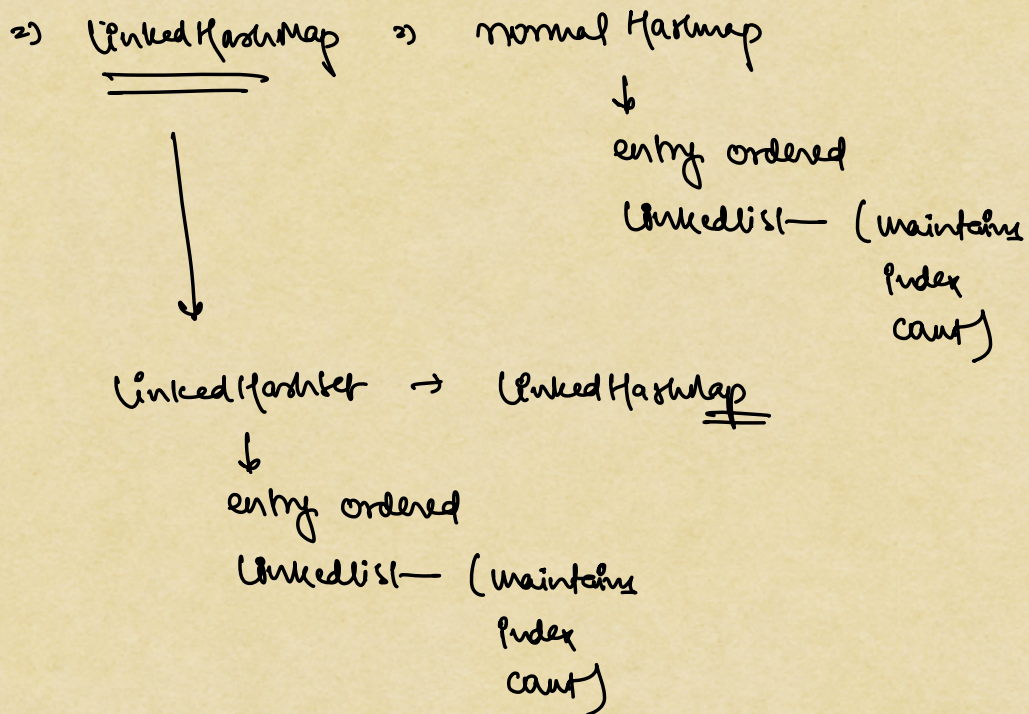 => LinkedHashMap => normal Hashmap
entry ordered
LinkedList — (maintains
index
count)
LinkedHashSet → LinkedHashMap
entry ordered
LinkedList — (maintains
index
count)